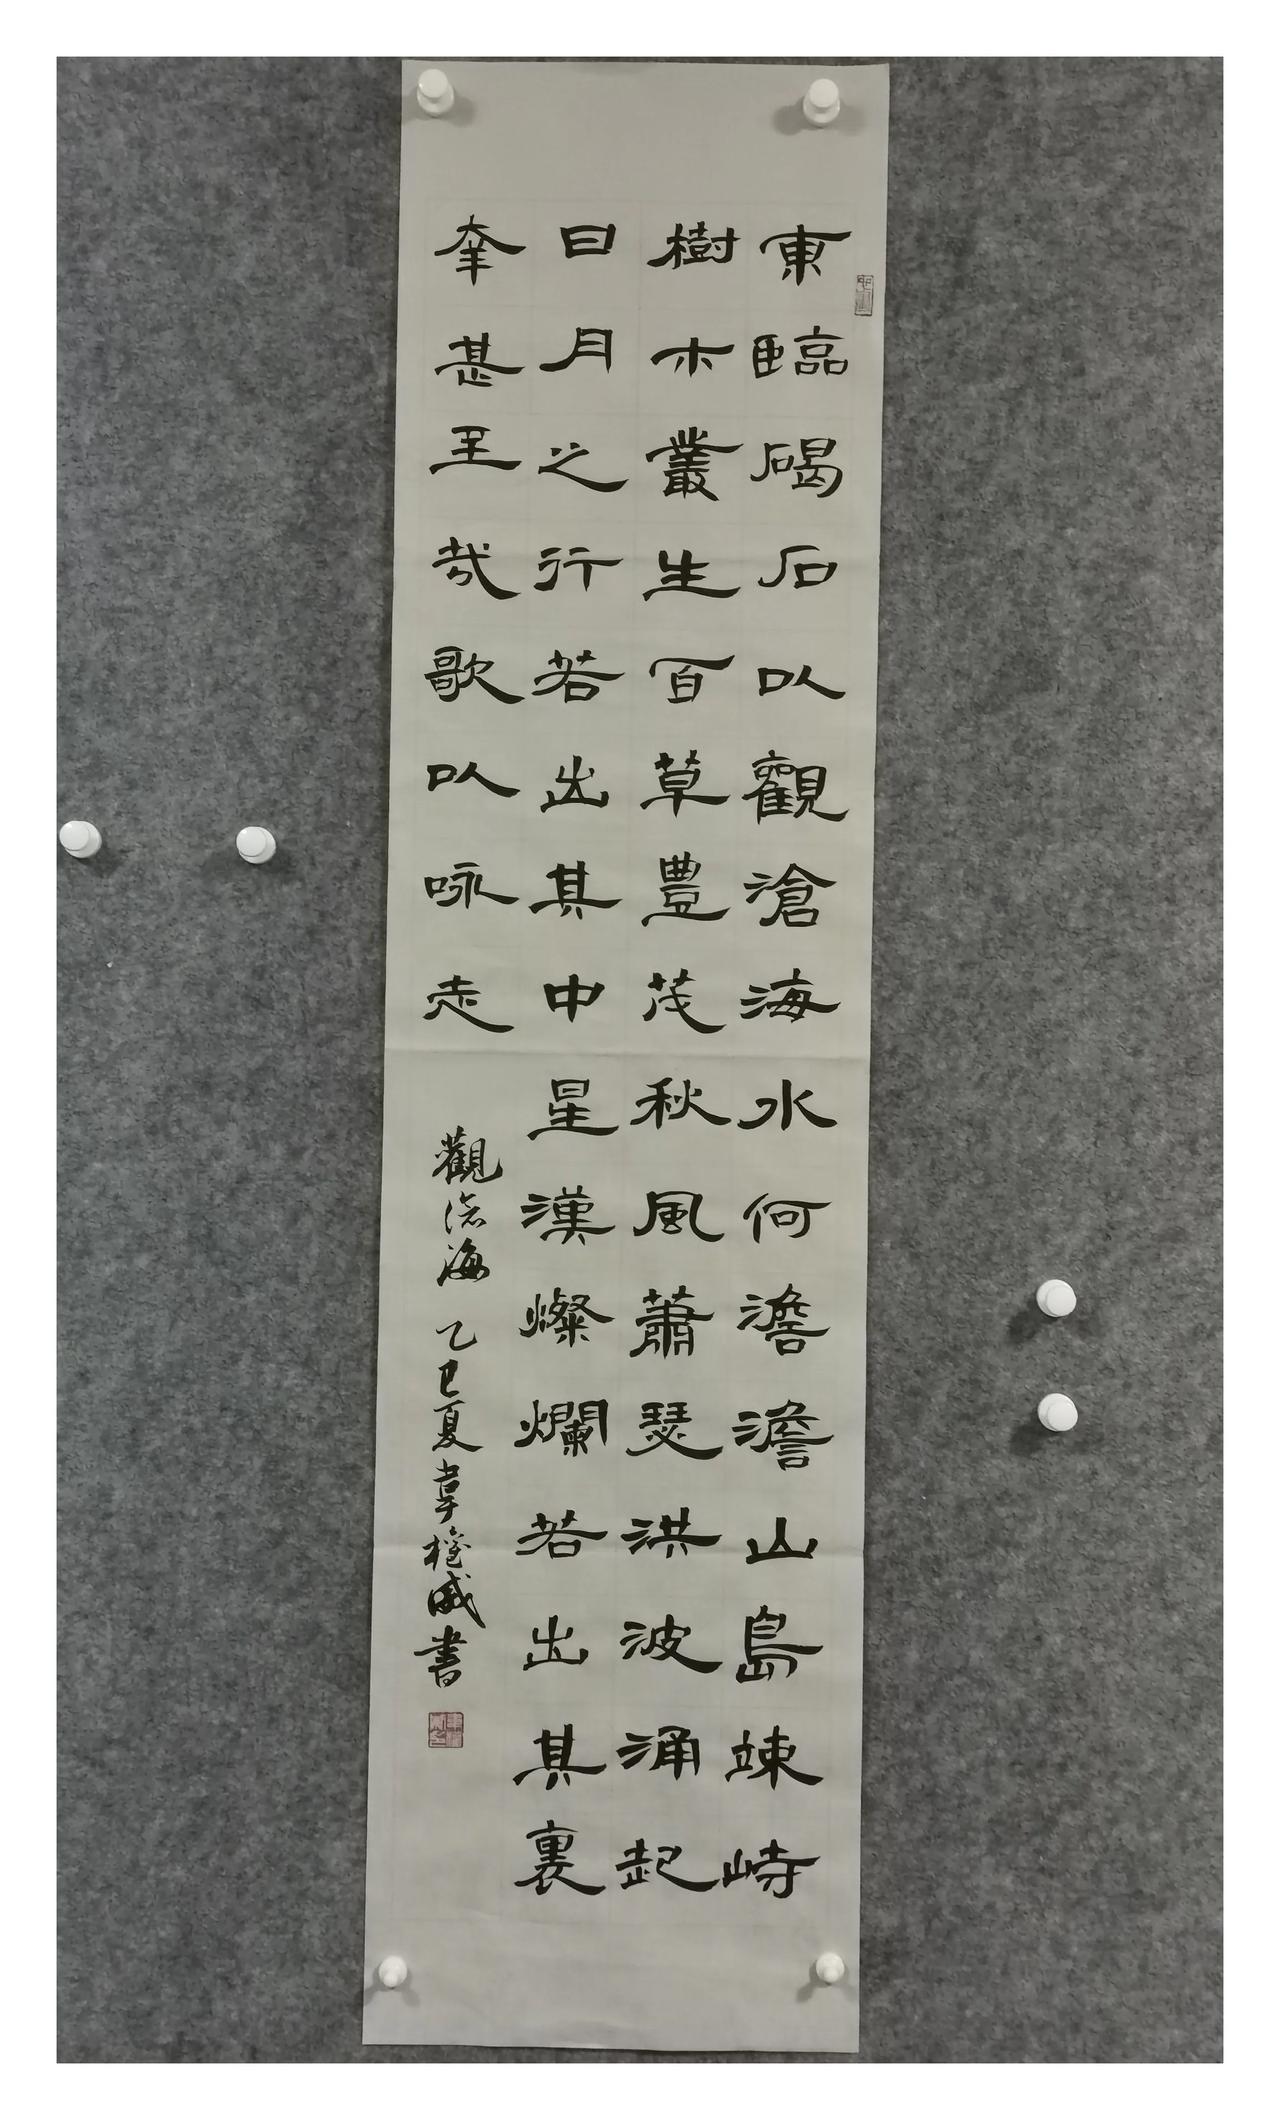 東臨碣石以觀滄海水何澹澹山島竦峙
樹木叢生百草豐茂秋風蕭瑟洪波涌起
日月之行若出其中星漢燦爛若出其裏
幸甚至哉歌以咏志
觀滄海 乙巳夏韋權威書